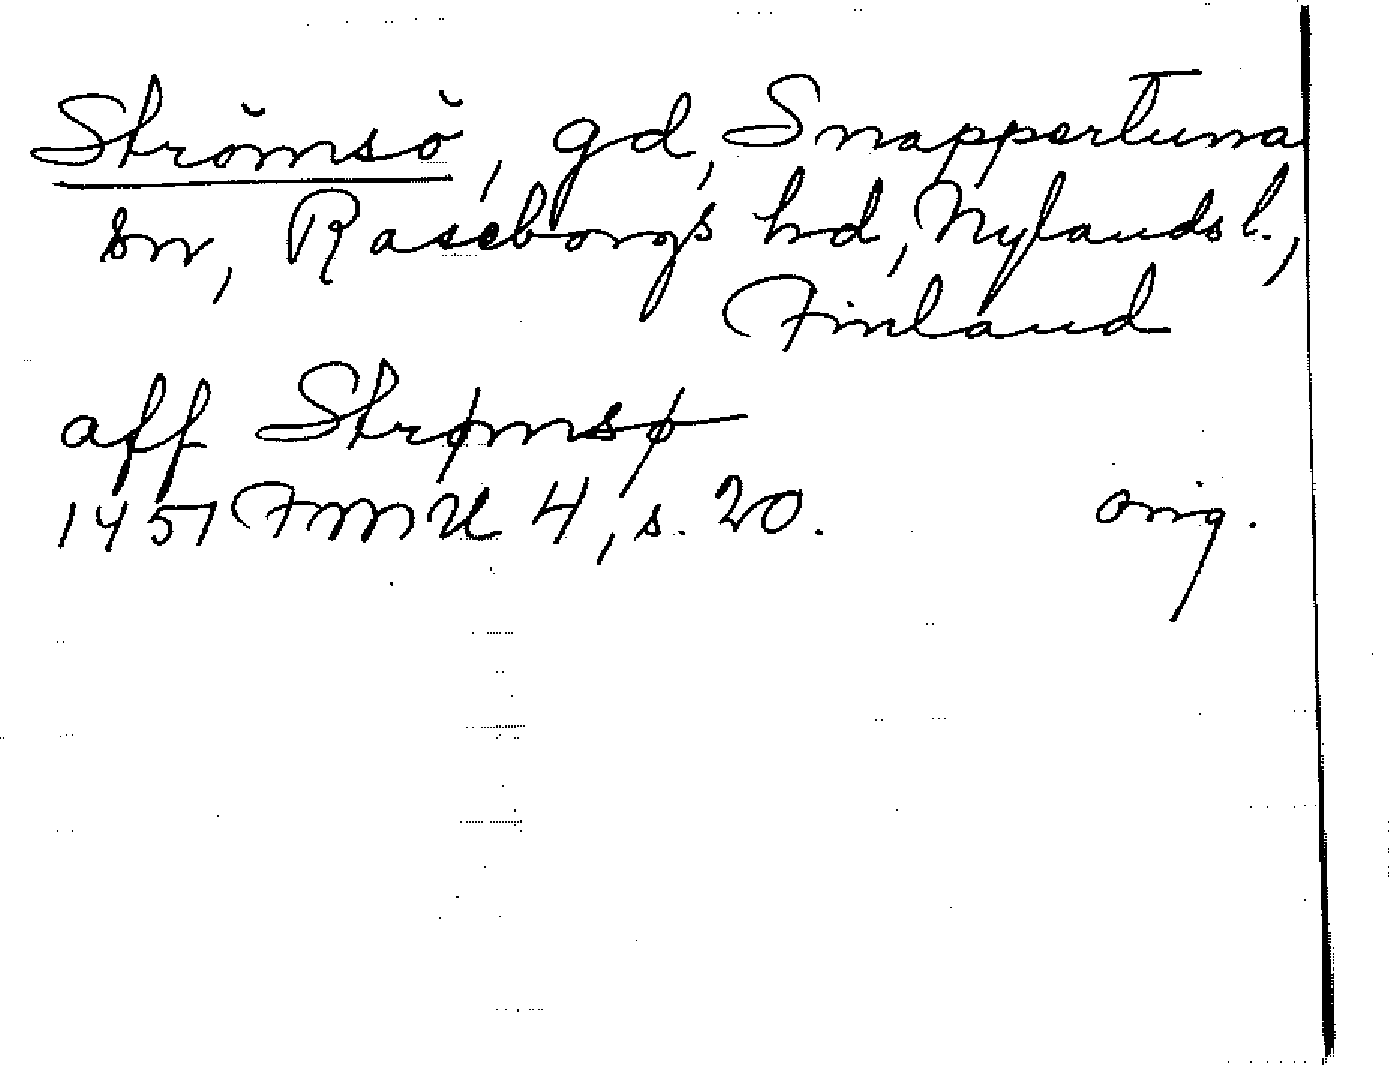 Strömsö, gd, Snappertuna
sn, Raseborgs hd, Nylands l.,
Finland
aff Strømsø
1451 FMU 4, s. 20. orig.